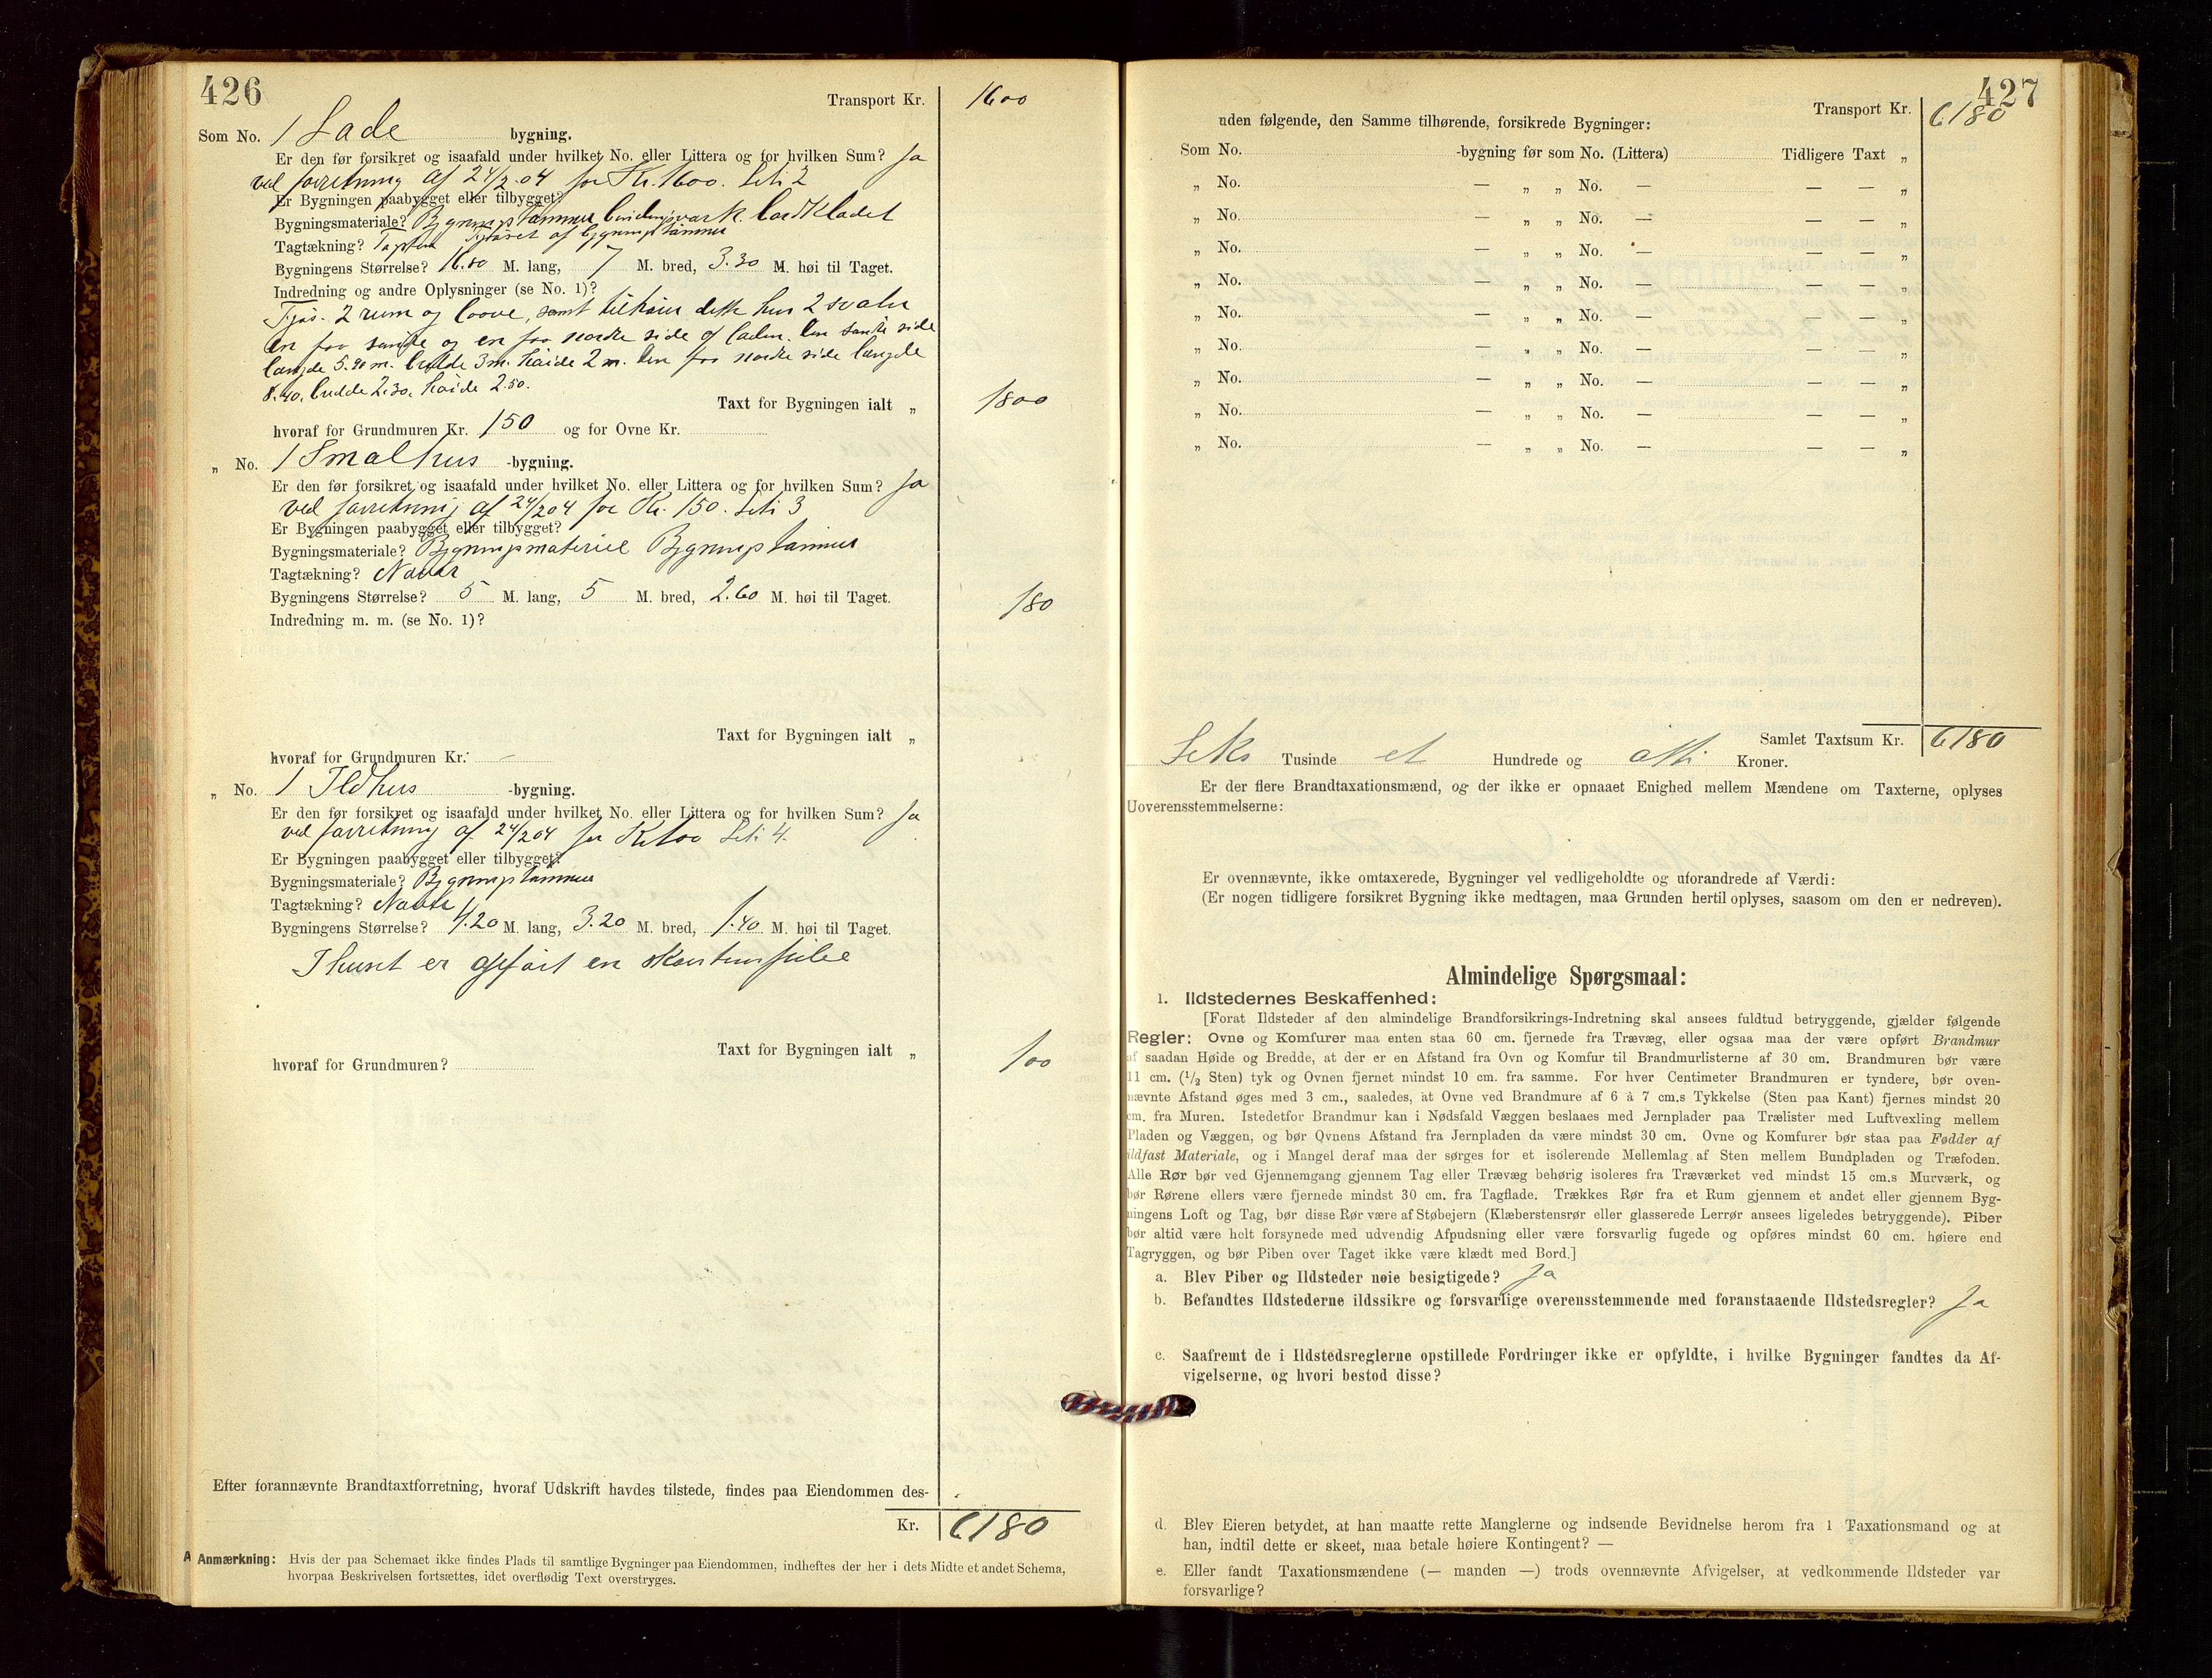 426
Transport Kr. 1600
Som No. 1 Lade bygning.
Er den før forsikret og isaafald under hvilket No. eller Littera og for hvilken Sum? Ja
ved forretning af 24/2 04 for Kr. 1600. Lit. 2
Er Bygningen paabygget eller tilbygget?
Bygningsmateriale? Bygningstømmer bordklædet
Tagtækning? af bygningstømmer
Bygningens Størrelse? 16.80 M. lang, 7 M. bred, 3.30 M. høi til Taget.
Indredning og andre Oplysninger (se No. 1)?
Fjøs. 2 rum og loove, samt tilhører dette hus 2 svaler
en paa søndre og en paa nordre side af laden. Den søndre side
længde 5.90 m. bredde 3 m. høide 2 m. Den paa nordre side længde
8.40, bredde 2.30, høide 2.50.
Taxt for Bygningen ialt „ 1800
hvoraf for Grundmuren Kr. 150 og for Ovne Kr.
„ No. 1 Smalhus -bygning.
Er den før forsikret og isaafald under hvilket No. eller Littera og for hvilken Sum? Ja
ved forretning af 24/2 04 for Kr. 150. Lit. 3
Er Bygningen paabygget eller tilbygget?
Bygningsmateriale? Bygningsmateriel Bygningstømmer
Tagtækning? Naver
Bygningens Størrelse? 5 M. lang, 5 M. bred, 2.60 M. høi til Taget. 180
Indredning m. m. (se No. 1)?
Taxt for Bygningen ialt „
hvoraf for Grundmuren Kr. –
„ No. 1 Ildhus -bygning.
Er den før forsikret og isaafald under hvilket No. eller Littera og for hvilken Sum? Ja
ved forretning af 24/2 04 for Kr 100 Lit. 4.
Er Bygningen paabygget eller tilbygget?
Bygningsmateriale? Bygningstømmer
Tagtækning? Naver
Bygningens Størrelse? 4.20 M. lang, 3.20 M. bred, 1.40 M. høi til Taget.
I huset er opført en
Taxt for Bygningen ialt „ 100
hvoraf for Grundmuren?
Efter forannævnte Brandtaxtforretning, hvoraf Udskrift havdes tilstede, findes paa Eiendommen des-
Kr. 6180
Anmærkning: Hvis der paa Schemaet ikke findes Plads til samtlige Bygninger paa Eiendommen, indheftes der her i dets Midte et andet Schema,
hvorpaa Beskrivelsen fortsættes, idet overflødig Text overstryges.
427
Transport Kr. 6180
uden følgende, den Samme tilhørende, forsikrede Bygninger:
Som No. -bygning før som No. (Littera) Tidligere Taxt „
„ No. — „ „ No. — — — „
„ No. — „ „ No. — — — „
„ No. — „ „ No. — — — „
„ No. — „ „ No. — — — „
„ No. — „ „ No. — — — „
„ No. — „ „ No. — — — „
„ No. — „ „ No. — — — „
„ No. — „ „ No. — — — „
„ No. — „ „ No. — — — „
Samlet Taxtsum Kr. 6180
Seks Tusinde et Hundrede og otti Kroner.
Er der flere Brandtaxationsmænd, og der ikke er opnaaet Enighed mellem Mændene om Taxterne, oplyses
Uoverensstemmelserne:
Er ovennævnte, ikke omtaxerede, Bygninger vel vedligeholdte og uforandrede af Værdi:
(Er nogen tidligere forsikret Bygning ikke medtagen, maa Grunden hertil oplyses, saasom om den er nedreven).
Almindelige Spørgsmaal:
1. Ildstedernes Beskaffenhed:
[Forat Ildsteder af den almindelige Brandforsikrings-Indretning skal ansees fuldtud betryggende, gjælder følgende
Regler: Ovne og Komfurer maa enten staa 60 cm. fjernede fra Trævæg, eller ogsaa maa der være opført Brandmur
af saadan Høide og Bredde, at der er en Afstand fra Ovn og Komfur til Brandmurlisterne af 30 cm. Brandmuren bør være
11 cm. (1/2 Sten) tyk og Ovnen fjernet mindst 10 cm. fra samme. For hver Centimeter Brandmuren er tyndere, bør oven-
nævnte Afstand øges med 3 cm., saaledes, at Ovne ved Brandmure af 6 à 7 cm.s Tykkelse (Sten paa Kant) fjernes mindst 20
cm. fra Muren. Istedetfor Brandmur kan i Nødsfald Væggen beslaaes med Jernplader paa Trælister med Luftvexling mellem
Pladen og Væggen, og bør Ovnens Afstand fra Jernpladen da være mindst 30 cm. Ovne og Komfurer bør staa paa Fødder af
ildfast Materiale, og i Mangel deraf maa der sørges for et isolerende Mellemlag af Sten mellem Bundpladen og Træfoden.
Alle Rør bør ved Gjennemgang gjennem Tag eller Trævæg behørig isoleres fra Træværket ved mindst 15 cm.s Murværk, og
bør Rørene ellers være fjernede mindst 30 cm. fra Tagflade. Trækkes Rør fra et Rum gjennem et andet eller gjennem Byg-
ningens Loft og Tag, bør disse Rør være af Støbejern (Klæberstensrør eller glasserede Lerrør ansees ligeledes betryggende). Piber
bør altid være helt forsynede med udvendig Afpudsning eller være forsvarlig fugede og opføres mindst 60 cm. høiere end
Tagryggen, og bør Piben over Taget ikke være klædt med Bord.]
a. Blev Piber og Ildsteder nøie besigtigede? Ja
b. Befandtes Ildstederne ildssikre og forsvarlige overensstemmende med foranstaaende Ildstedsregler? Ja
c. Saafremt de i Ildstedsreglerne opstillede Fordringer ikke er opfyldte, i hvilke Bygninger fandtes da Af-
vigelserne, og hvori bestod disse?
d. Blev Eieren betydet, at han maatte rette Manglerne og indsende Bevidnelse herom fra 1 Taxationsmand og at
han, indtil dette er skeet, maa betale høiere Kontingent? —
e. Eller fandt Taxationsmændene (— manden —) trods ovennævnte Afvigelser, at vedkommende Ildsteder var
forsvarlige?